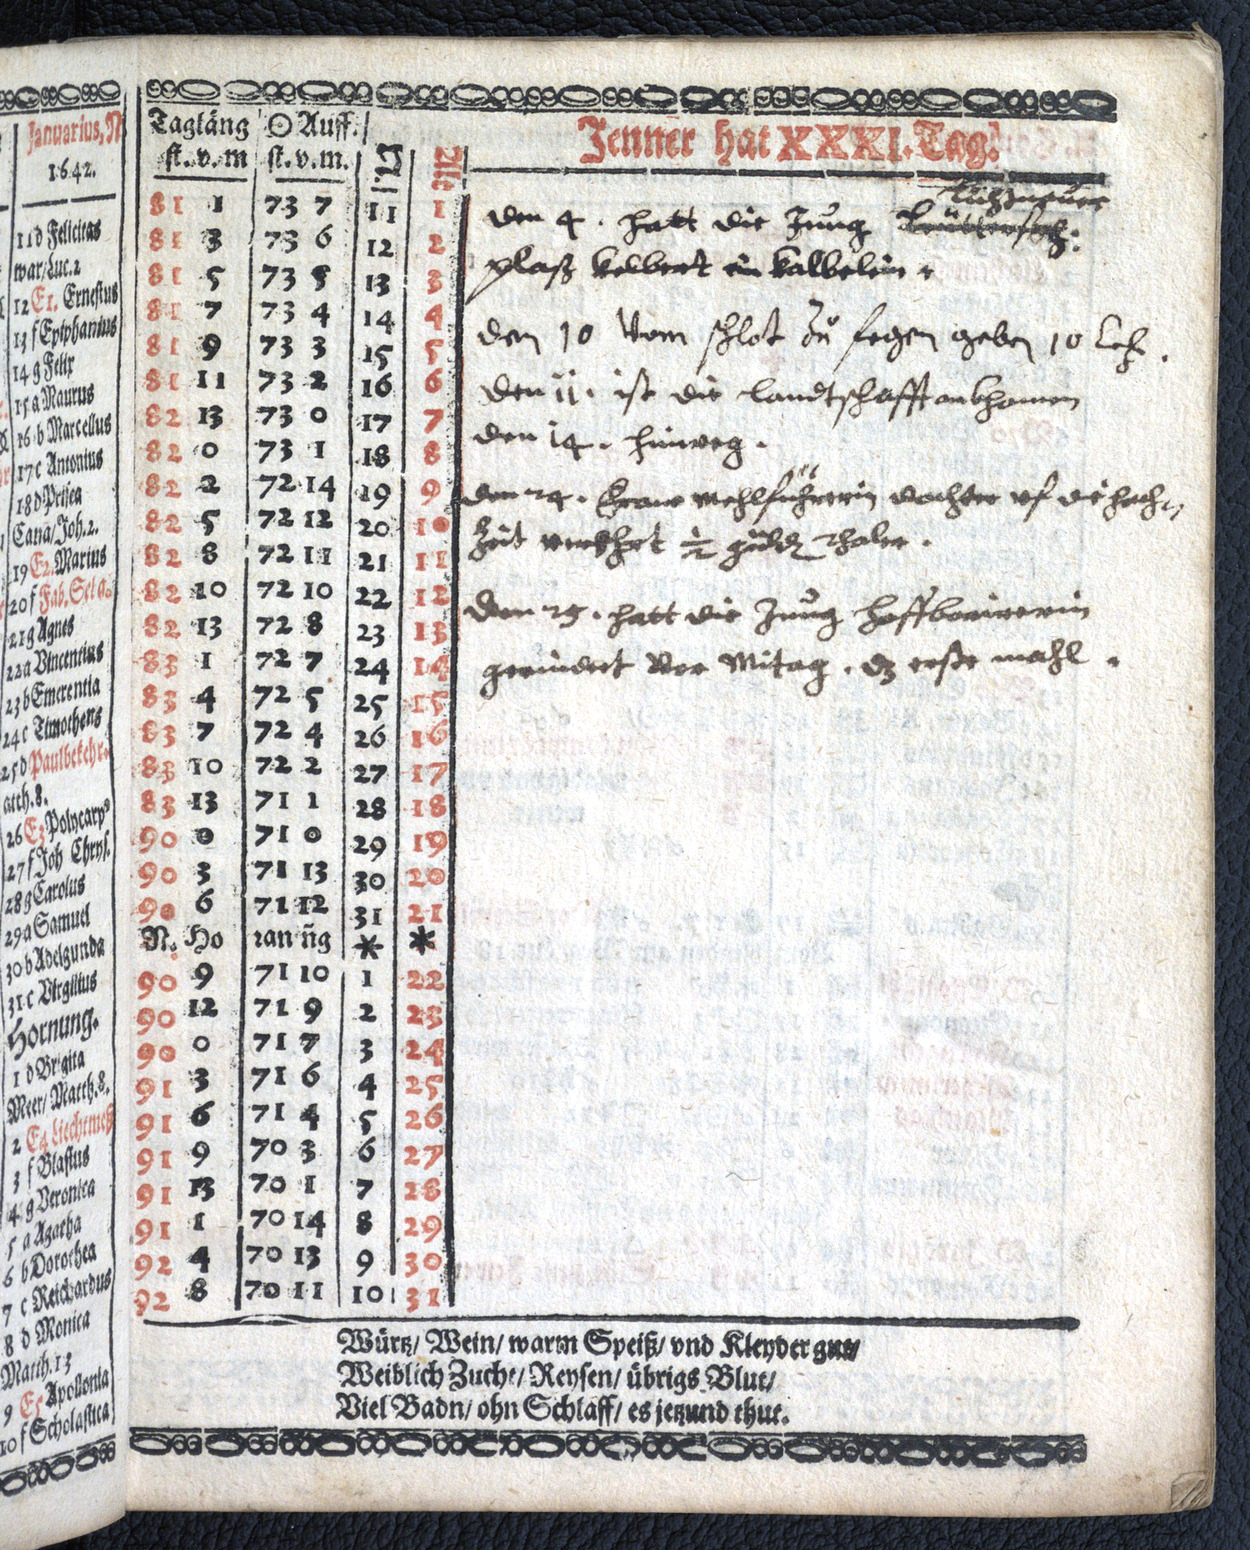 Januarius, N
1642.
11 d Felicitas
war/Luc.2
12 E1. Ernestus
13 f Epiphanius
14 g Felix
15 a Maurus
16 b Marcellus
17 c Antonius
18 d Prisca
Cana/Joh.2.
19 E2. Marius
20 f Fab. Seba.
21 g Agnes
22 a Vincentius
23 b Emerentia
24 c Timotheus
25 d Paulbekehr.
atth.8.
26 E3 Polycarp9
27 f Joh Chrys.
28 g Carolus
29 a Samuel
30 b Adelgunda
31 c Virgilius
Hornung.
1 d Brigita
Meer/Matth.8.
2 E4 Liechtmeß
3 f Blasius
4 g Veronica
5 a Agatha
6 b Dorothea
7 c Reichardus
8 d Monica
Matth.13
9 E5 Apollonia
10 f Scholastica
Tagläng ☉ Auff. Jenner hat XXXI. Tag.
st. v. m st. v. m.
81 1 73 7 11 1
81 3 73 6 12 2
81 5 73 5 13 3
81 7 73 4 14 4
81 9 73 3 15 5
81 11 73 2 16 6
82 13 73 0 17 7
82 0 73 1 18 8
82 2 72 14 19 9
82 5 72 12 20 10
82 8 72 11 21 11
82 10 72 10 22 12
82 13 72 8 23 13
83 1 72 7 24 14
83 4 72 5 25 15
83 7 72 4 26 16
83 10 72 2 27 17
83 13 71 1 28 18
90 0 71 0 29 19
90 3 71 13 30 20
90 6 71 12 31 21
N. Ho ran ñg * *
90 9 71 10 1 22
90 12 71 9 2 23
90 0 71 7 3 24
91 3 71 6 4 25
91 6 71 4 5 26
91 9 70 3 6 27
91 13 70 1 7 28
91 1 70 14 8 29
92 4 70 13 9 30
92 8 70 11 10 31
den 4. hatt die Jung
plaß kelbert ein kalbelein
den 10 vom schlot zu fegen geben 10
den 11. ist die landtschafft ankhomen
den 14. hinweg.
den 24. dochter vf die hoch
zeit verehrt ½ thaler.
den 25. hatt die Jung
gerindert vor Mitag. dz erste mahl.
Würtz/ Wein/ warm Speiß/ vnd Kleyder gut/
Weiblich Zucht/ Reysen/ übrigs Blut/
Viel Badn/ ohn Schlaff/ es jetzund thut.